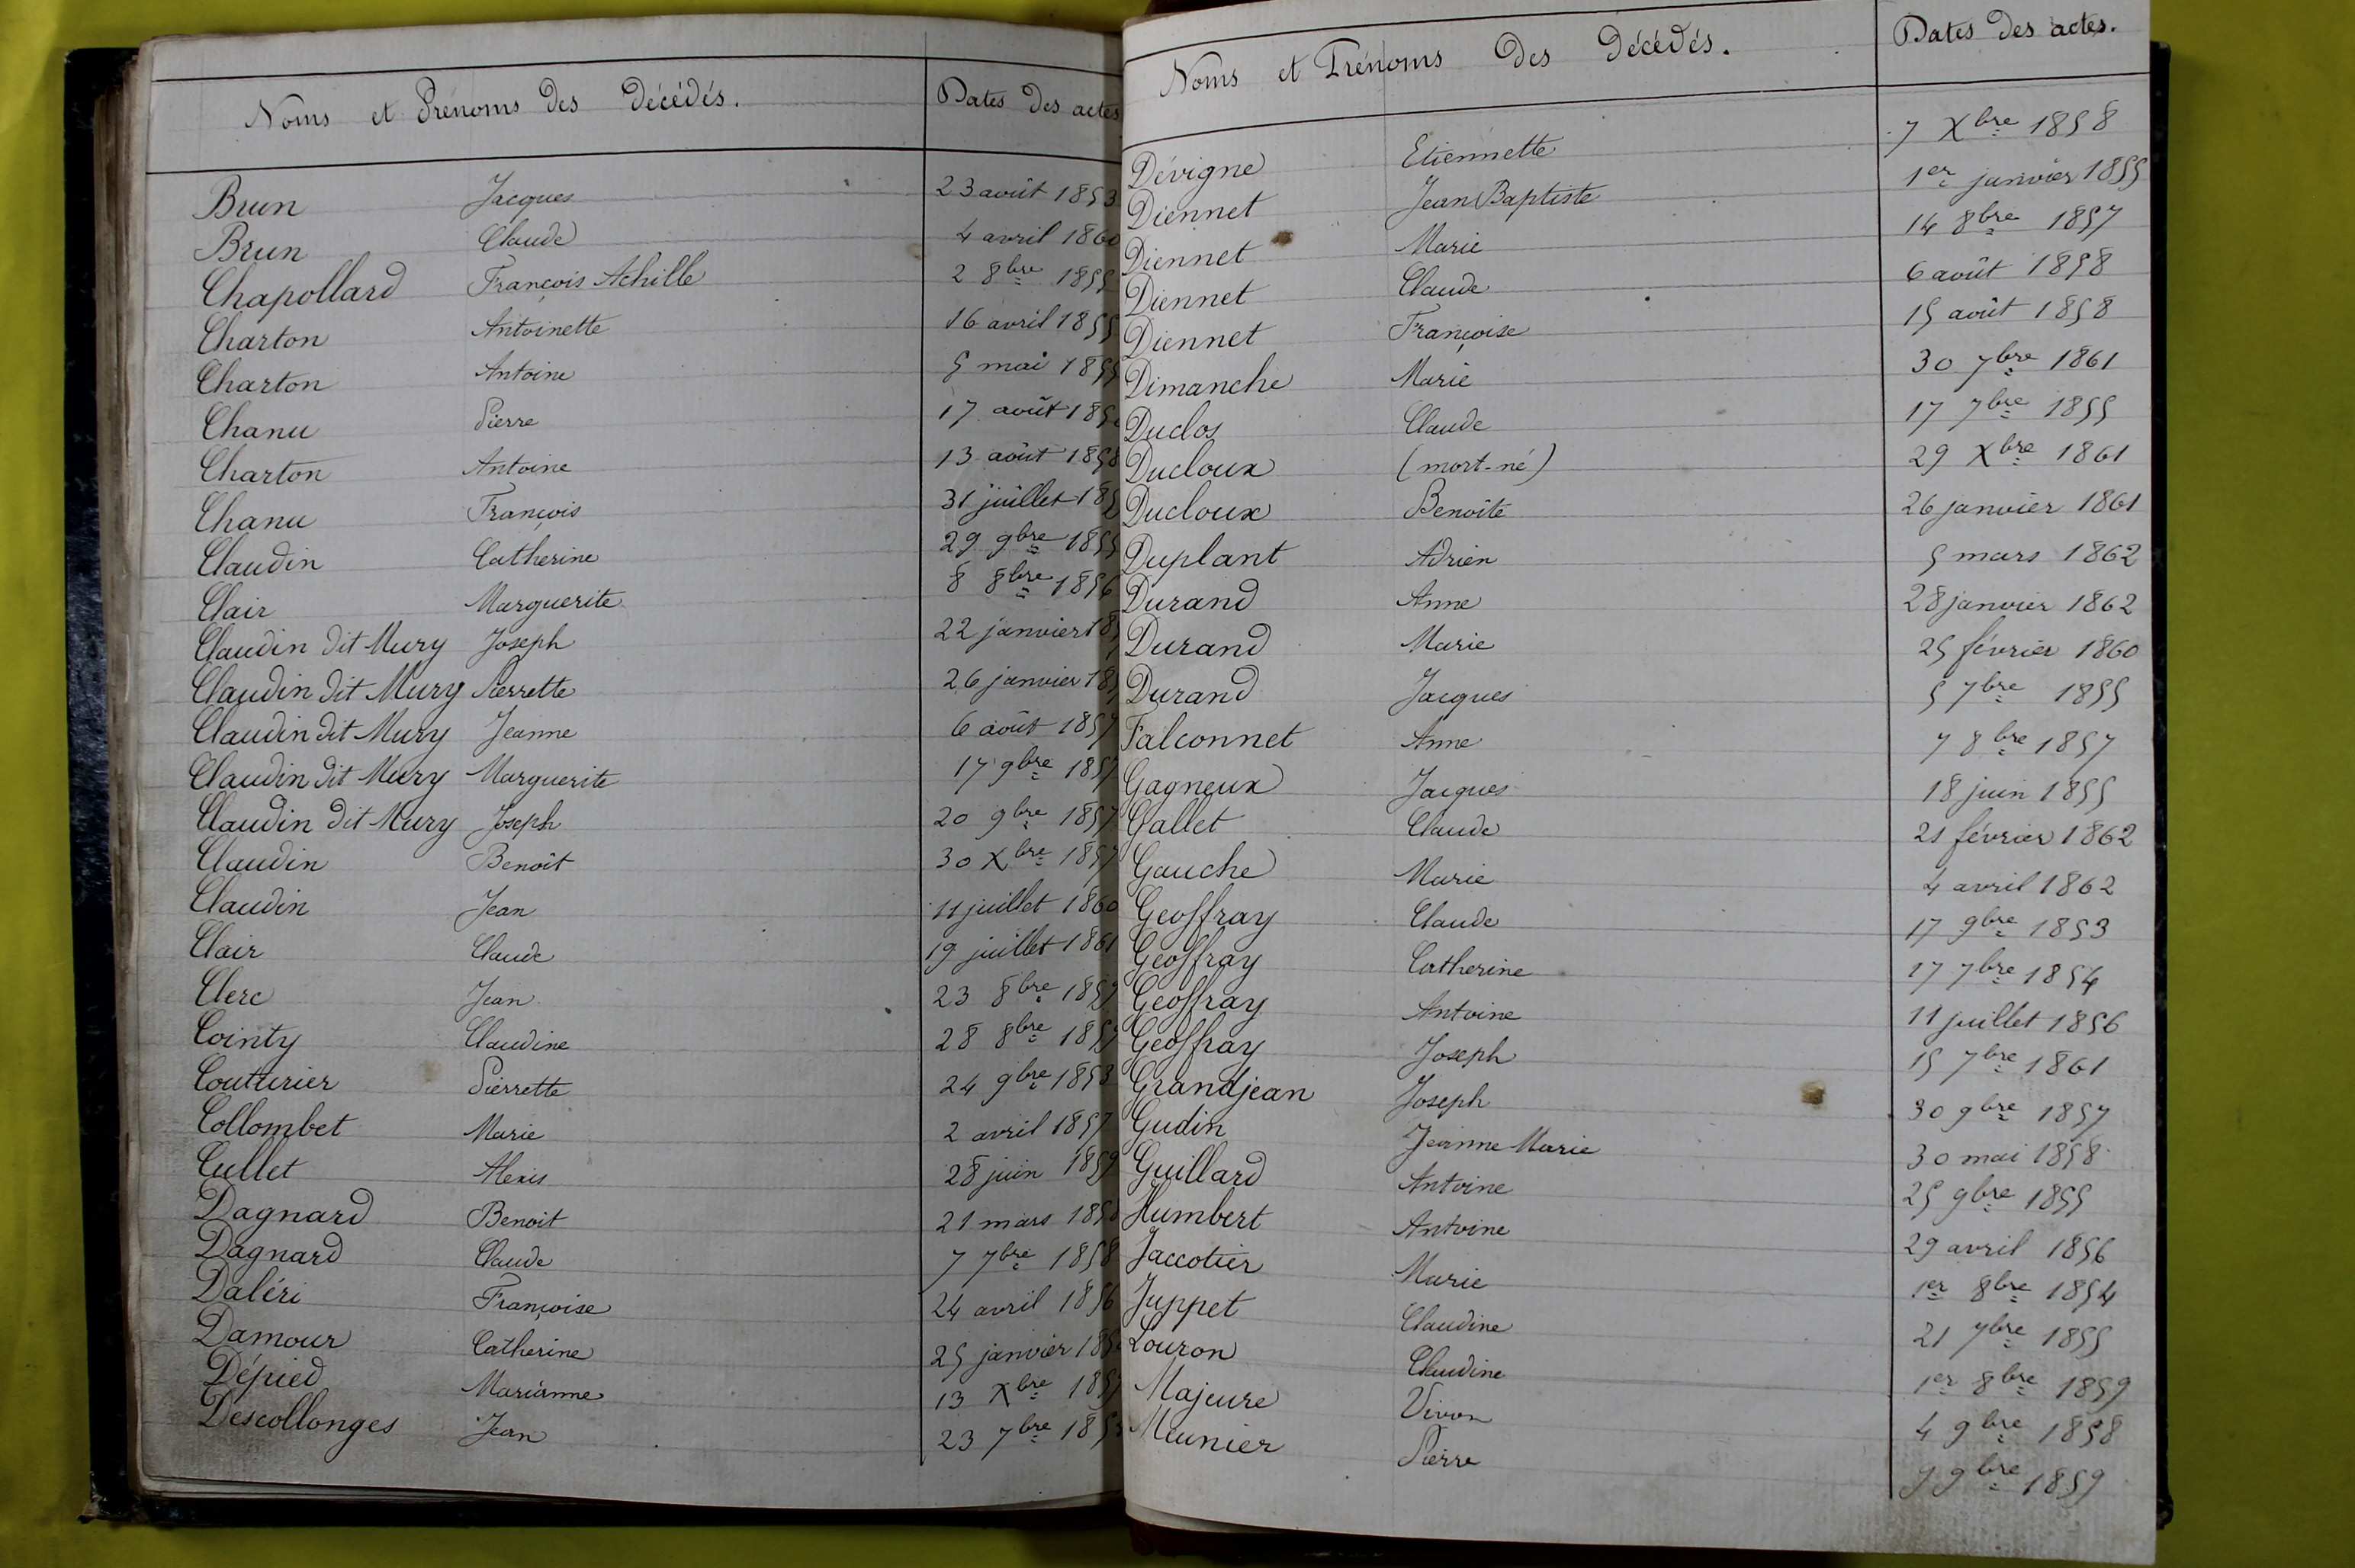 Noms et Prénoms des décédés. Dates des actes
Brun Jacques 23 août 1853
Brun Claude 4 avril 1860
Chapollard François Achille 2 8bre 1855
Charton Antoinette 16 avril 1855
Charton Antoine 5 mai 1855
Chanu Pierre 17 août
Charton Antoine 13 août 1858
Chanu François 31 juillet
Claudin Catherine 29 9bre 1855
Clair Marguerite 8 8bre 1856
Claudin dit Mury Joseph 22 janvier
Claudin dit Mury Pierrette 26 janvier
Claudin dit Mury Jeanne 6 août 1857
Claudin dit Mury Marguerite 17 9bre 1857
Claudin dit Mury Joseph 20 9bre 1857
Claudin Benoît 30 Xbre 1857
Claudin Jean 11 juillet 1860
Clair Claude 19 juillet 1861
Clerc Jean 23 8bre
Cointy Claudine 28 8bre
Coutturier Pierrette 24 9bre 1853
Collombet Marie 2 avril 1857
Cullet Alexis 28 juin 1859
Dagnard Benoit 21 mars
Dagnard Claude 7 7bre 1858
Daléri Françoise 24 avril 1856
Damour Catherine 25 janvier
Dépied Marianne 13 Xbre
Descollonges Jean 23 7bre
Noms et Prénoms des décédés. Dates des actes.
Dévigne Etiennette 7 Xbre 1858
Diennet Jean Baptiste 1er janvier 1855
Diennet Marie 14 8bre 1857
Diennet Claude 6 août 1858
Diennet Françoise 15 août 1858
Dimanche Marie 30 7bre 1861
Duclos Claude 17 7bre 1855
Ducloux (mort-né) 29 Xbre 1861
Ducloux Benoîte 26 janvier 1861
Duplant Adrien 5 mars 1862
Durand Anne 28 janvier 1862
Durand Marie 25 février 1860
Durand Jacques 5 7bre 1855
Falconnet Anne 7 8bre 1857
Gagneux Jacques 18 juin 1855
Gallet Claude 21 février 1862
Gauche Marie 4 avril 1862
Geoffray Claude 17 9bre 1853
Geoffray Catherine 17 7bre 1854
Geoffray Antoine 11 juillet 1856
Geoffray Joseph 15 7bre 1861
Grandjean Joseph 30 9bre 1857
Gudin Jeanne Marie 30 mai 1858
Guillard Antoine 25 9bre 1855
Humbert Antoine 29 avril 1856
Jaccotier Marie 1er 8bre 1854
Juppet Claudine 21 7bre 1855
Louron Claudine 1er 8bre 1859
Majeure Vivon 4 9bre 1858
Meunier Pierre 9 9bre 1859